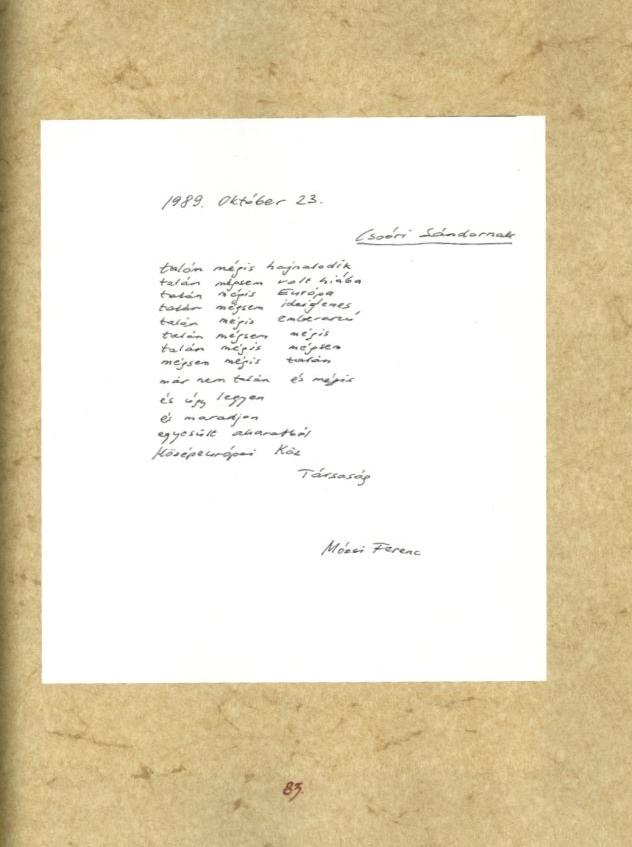 1989. Október 23.
Csoóri Sándornak
talán mégis hajnalodik
talán mégsem volt hiába
talán mégis Európa
talán mégsem ideiglenes
talán mégis emberarcú
talán mégsem mégis
talán mégis mégsem
mégsem mégis talán
már nem talán és mégis
és úgy legyen
és maradjon
egyesült akaratból
Középeurópai Köz
Társaság
Mózsi Ferenc
83.